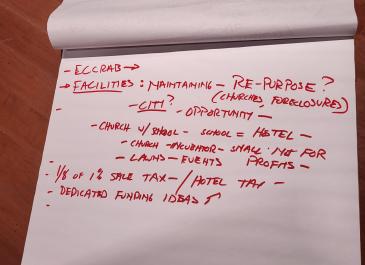 - ECCRAB →
→ FACILITIES : MAINTAINING - RE-PURPOSE?
(CHURCHES, FORECLOSURES)
- CITY?
- OPPORTUNITY -
- CHURCH W/ SCHOOL - SCHOOL = HOTEL -
- CHURCH - INCUBATOR - SMALL NOT FOR
- LAWNS - EVENTS PROFITS -
- 1/8 OF 1% SALE TAX - / HOTEL TAX -
- DEDICATED FUNDING IDEAS
-